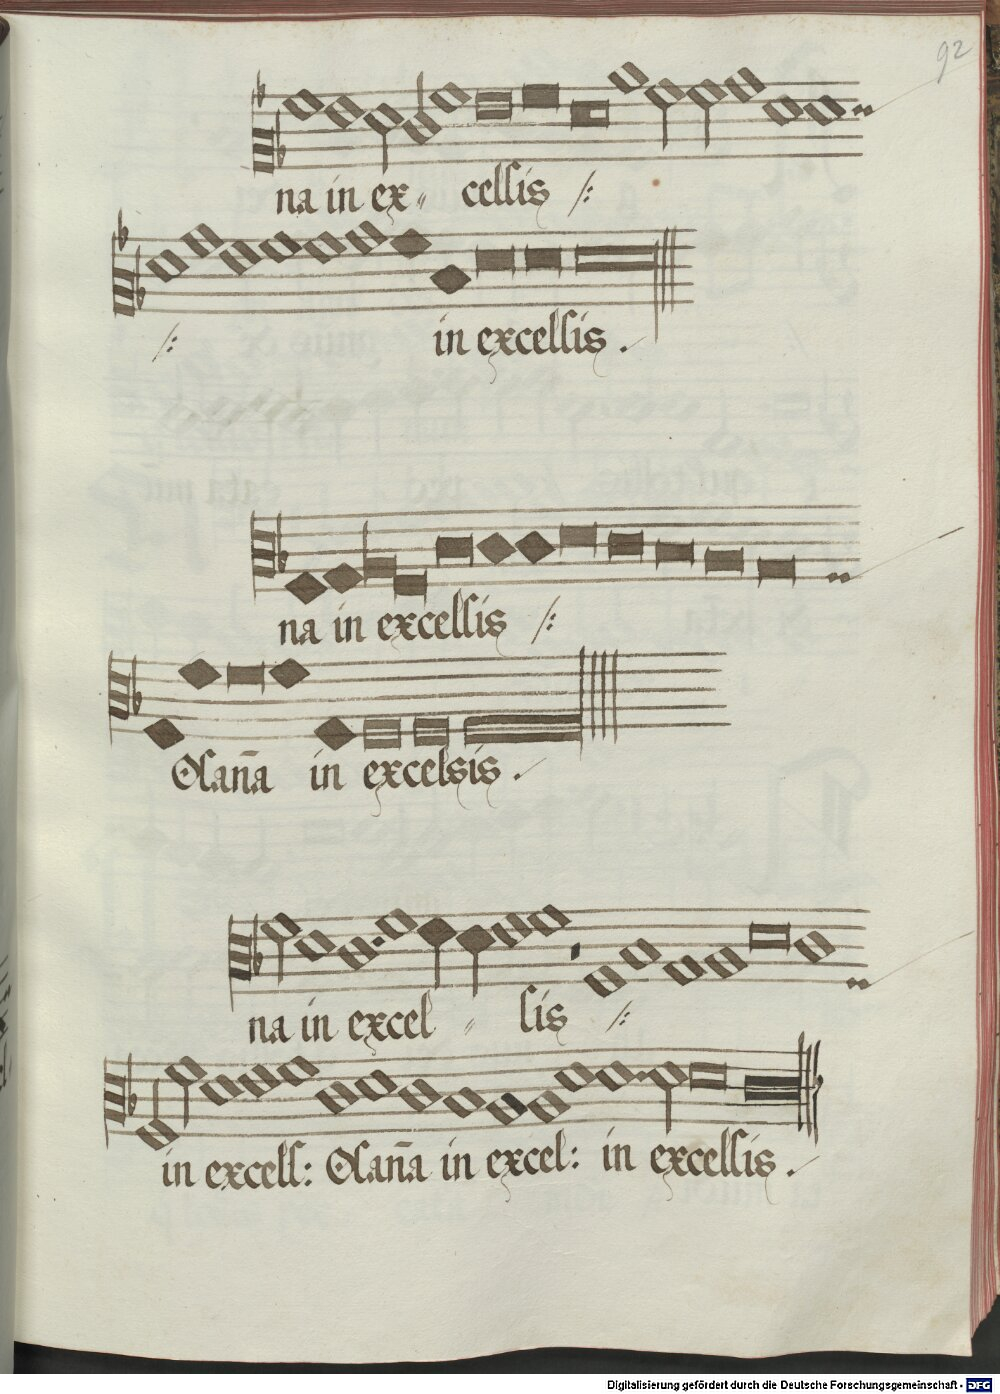 92
na in ex〃 cellis /:
/: in excellis .
na in excellis /:
Osan̄a in excelsis .
na in excel 〃 lis /:
in excell: Osan̄a in excel: in excellis .
Digitalisierung gefördert durch die Deutsche Forschungsgemeinschaft - DFG